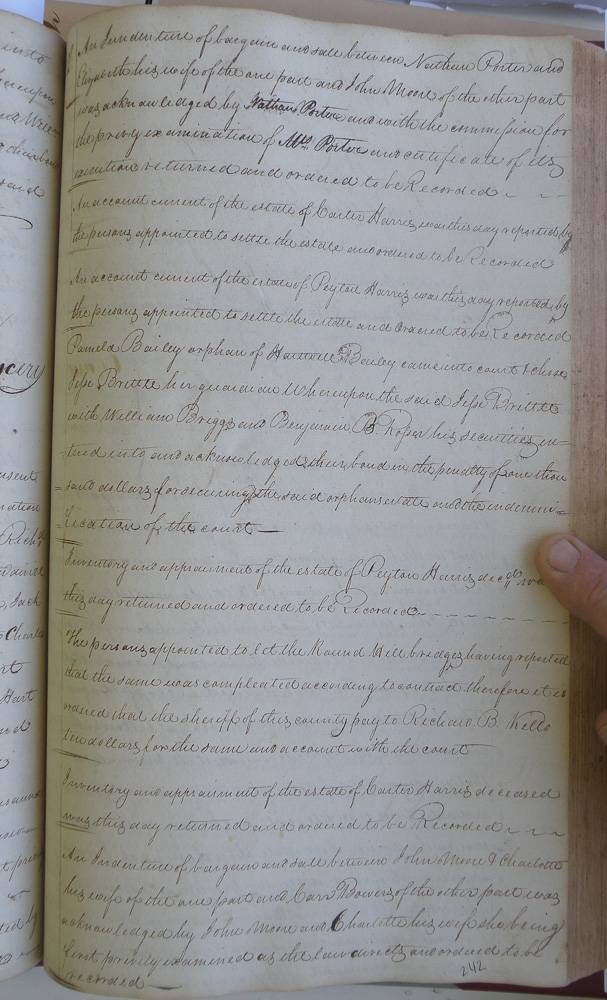 An Indenture of bargain and sale between Nathan Porter and
Elizabeth his wife of the one part and John Moore of the other part
was acknowledged by Nathan Porter and with the commission for
the privy examination of Mrs. Porter and certificate of its
execution returned and ordered to be Recorded
An account current of the estate of Carter Harris was this day reported by
the persons appointed to settle the estate and ordered to be Recorded
An account current of the estate of Peyton Harris was this day reported by
the persons appointed to settle the estate and ordered to be Recorded
Pamela Bailey orphan of Bailey came into court & chose
Jesse Brittle her guardian Whereupon the said Jesse Brittle
with William Briggs and Benjamin B Roper his securities en=
tered into and acknowledged their bond in the penalty of one thou
=sand dollars for securing the said orphans estate and the indemni=
fication of the court
Inventory and appraisment of the estate of Peyton Harris decd. was
this day returned and ordered to be Recorded
The persons appointed to let the Round Hill bridges having reported
that the same was compleated according to contract therefore it is
ordered that the sheriff of this county pay to Richard B. Kello
ten dollars for the same and account with the court
Inventory and appraisment of the estate of Carter Harris deceased
was this day returned and ordered to be Recorded
An Indenture of bargain and sale between John Moore & Charlotte
his wife of the one part and Carr Bowers of the other part was
acknowledged by John Moore and Charlotte his wife she being
first privily examined as the law directs and ordered to be
recorded
242
into
said
sent
nation
Rich
Jack
Charles
rt
Hart
nd